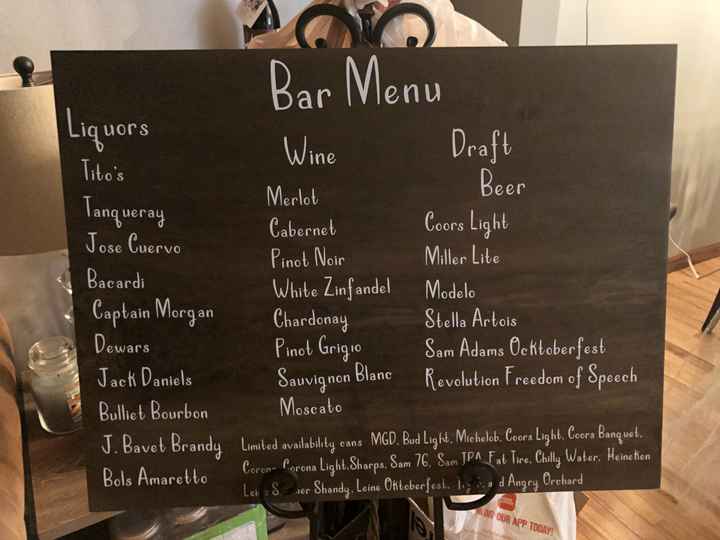 Bar Menu
Liquors
Tito's
Tanqueray
Jose Cuervo
Bacardi
Captain Morgan
Dewars
Jack Daniels
Bulliet Bourbon
J. Bavet Brandy
Bols Amaretto
Wine
Merlot
Cabernet
Pinot Noir
White Zinfandel
Chardonay
Pinot Grigio
Sauvignon Blanc
Moscato
Draft
Beer
Coors Light
Miller Lite
Modelo
Stella Artois
Sam Adams Ocktoberfest
Revolution Freedom of Speech
Limited availability cans MGD, Bud Light, Michelob, Coors Light, Coors Banquet,
Corona, Corona Light, Sharps, Sam 76, Sam IPA, Fat Tire, Chilly Water, Heineken
Shandy, Leine Oktoberfest, and Angry Orchard
OUR APP TODAY!